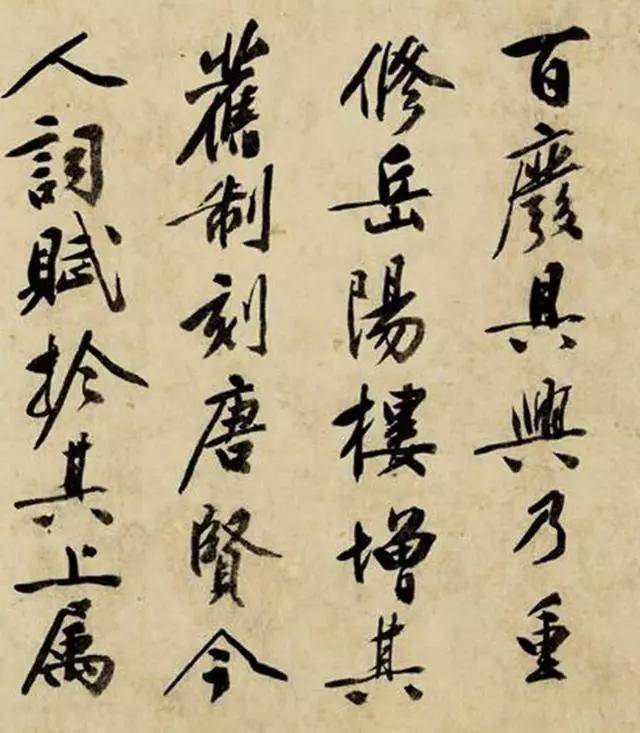 百廢具興乃重
修岳陽樓增其
舊制刻唐賢今
人詞賦於其上属